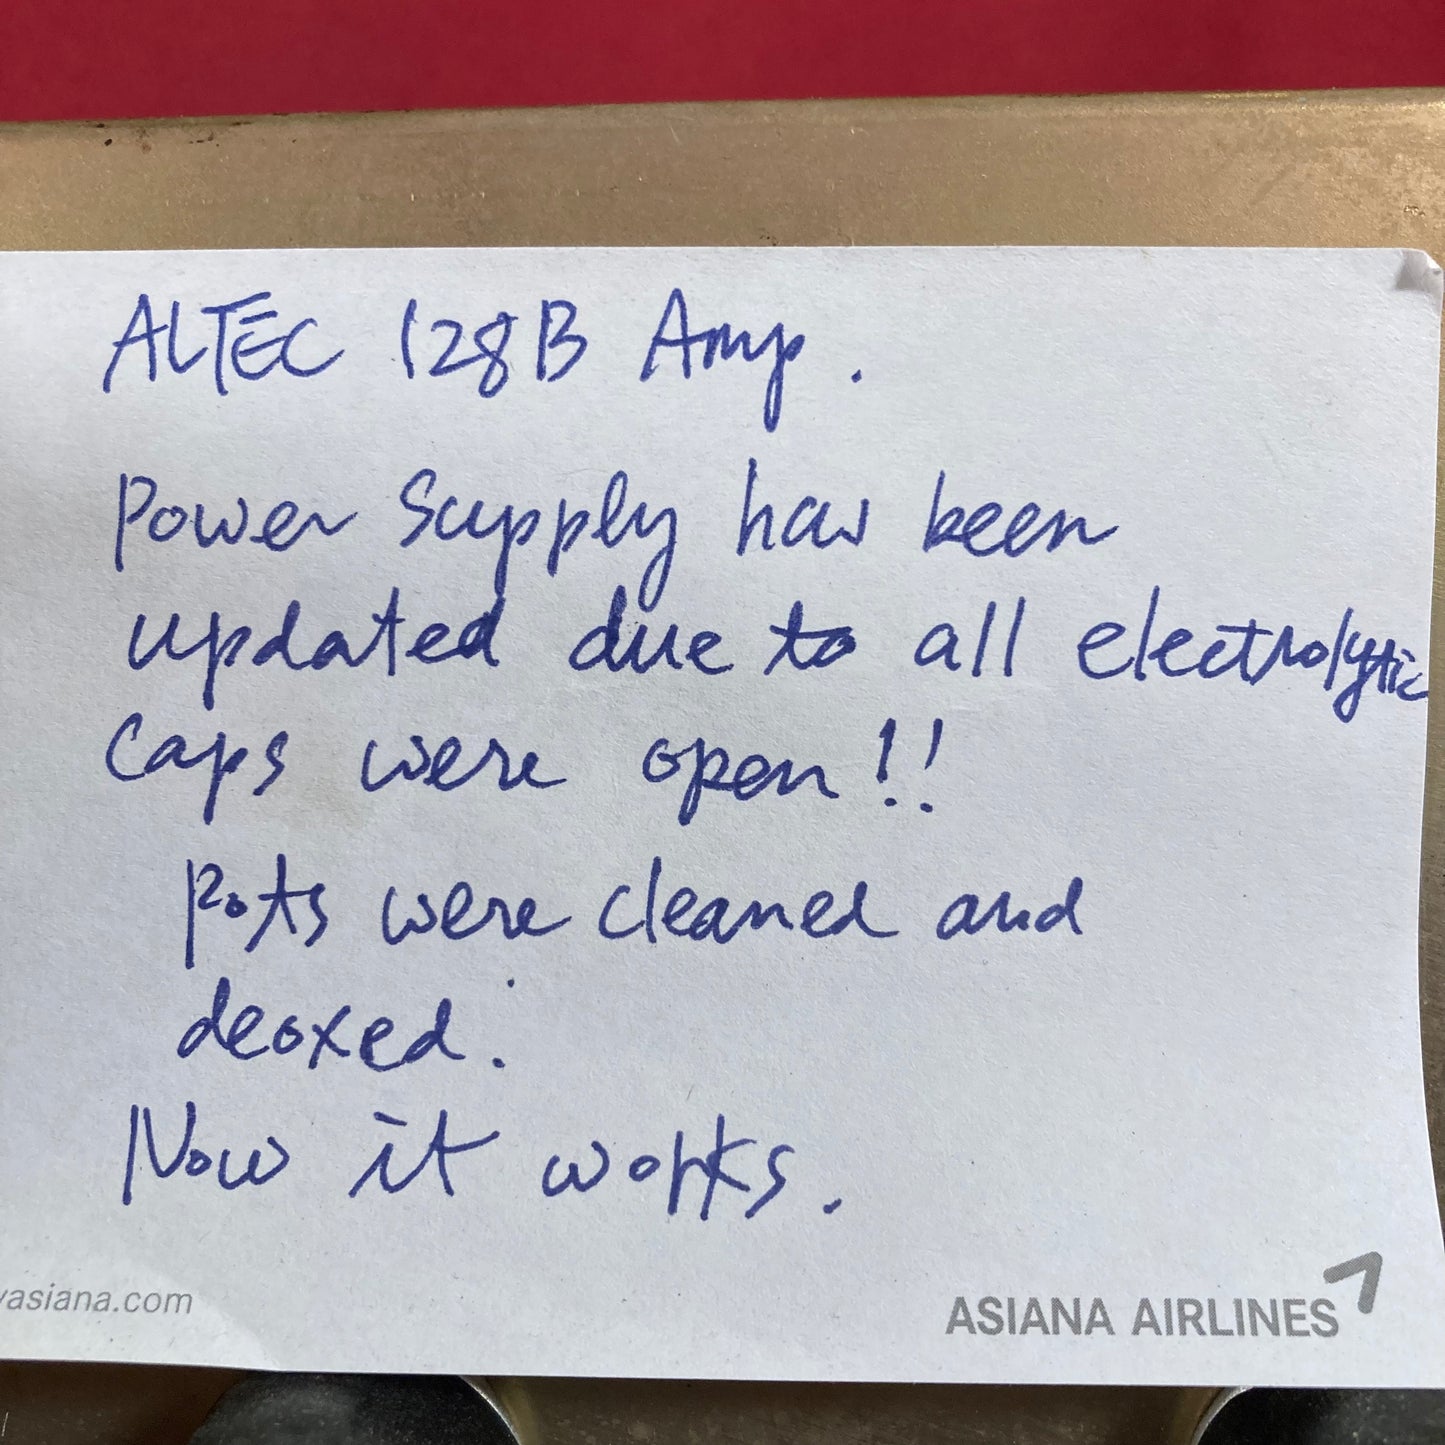 ALTEC 128B Amp.
Power Supply has been
updated due to all electrolytic
caps were open!!
Pots were cleaned and
deoxed.
Now it works.
yasiana.com
ASIANA AIRLINES